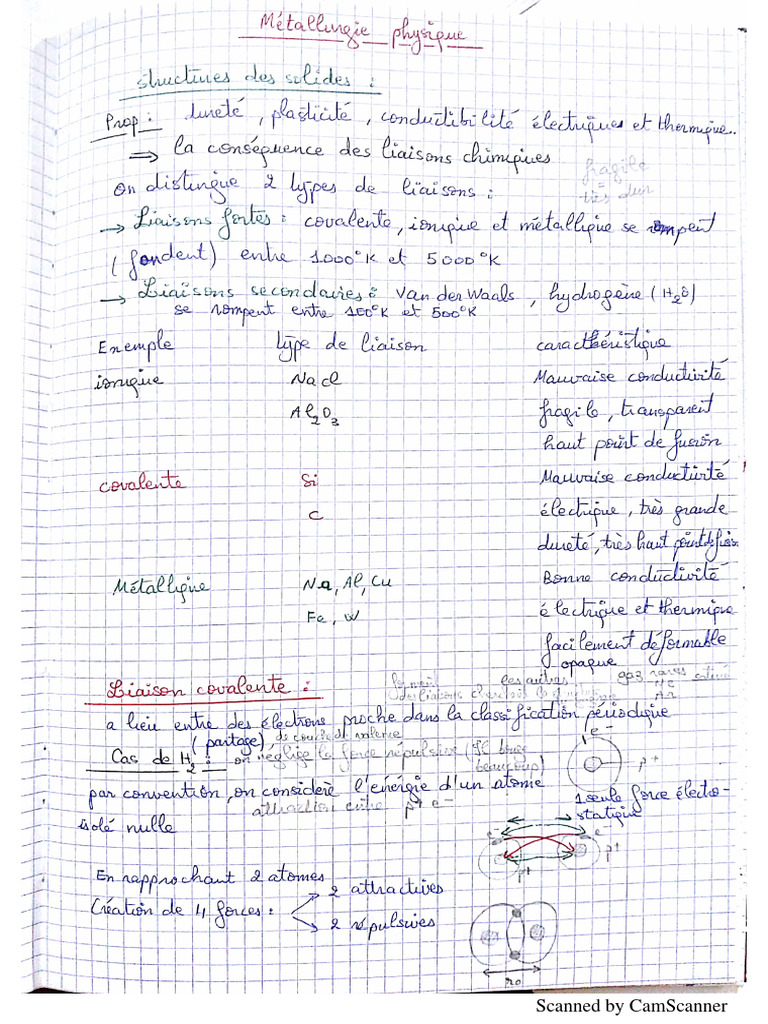 Métallurgie physique
structures des solides :
Prop : dureté, plasticité, conductibilité électriques et thermique.
=> la conséquence des liaisons chimiques
fragile
On distingue 2 types de liaisons :
très dur
→ Liaisons fortes : covalente, ionique et métallique se rompent
(fondent) entre 1000°K et 5000°K
→ Liaisons secondaires : Van der Waals, hydrogène (H2O)
se rompent entre 100°K et 500°K
Exemple type de liaison caractéristique
ionique NaCl Mauvaise conductivité
Al2O3 fragile, transparent
haut point de fusion
covalente Si Mauvaise conductivité
C électrique, très grande
dureté, très haut point de fus
Métallique Na, Al, Cu Bonne conductivité
Fe, W électrique et thermique
facilement déformable
opaque
les autres gaz rares
Liaison covalente :
a lieu entre des électrons proche dans la classification périodique
(partage) de couche de valence
e-
Cas de H2 : on néglige la force répulsive
beaucoup)
p+
par convention, on considère l'énergie d'un atome
attraction entre p+ e-
1 seule force électro-
statique
isolé nulle
e-
p+
p+
En rapprochant 2 atomes
2 attractives
Création de 4 forces :
2 répulsives
r0
Scanned by CamScanner